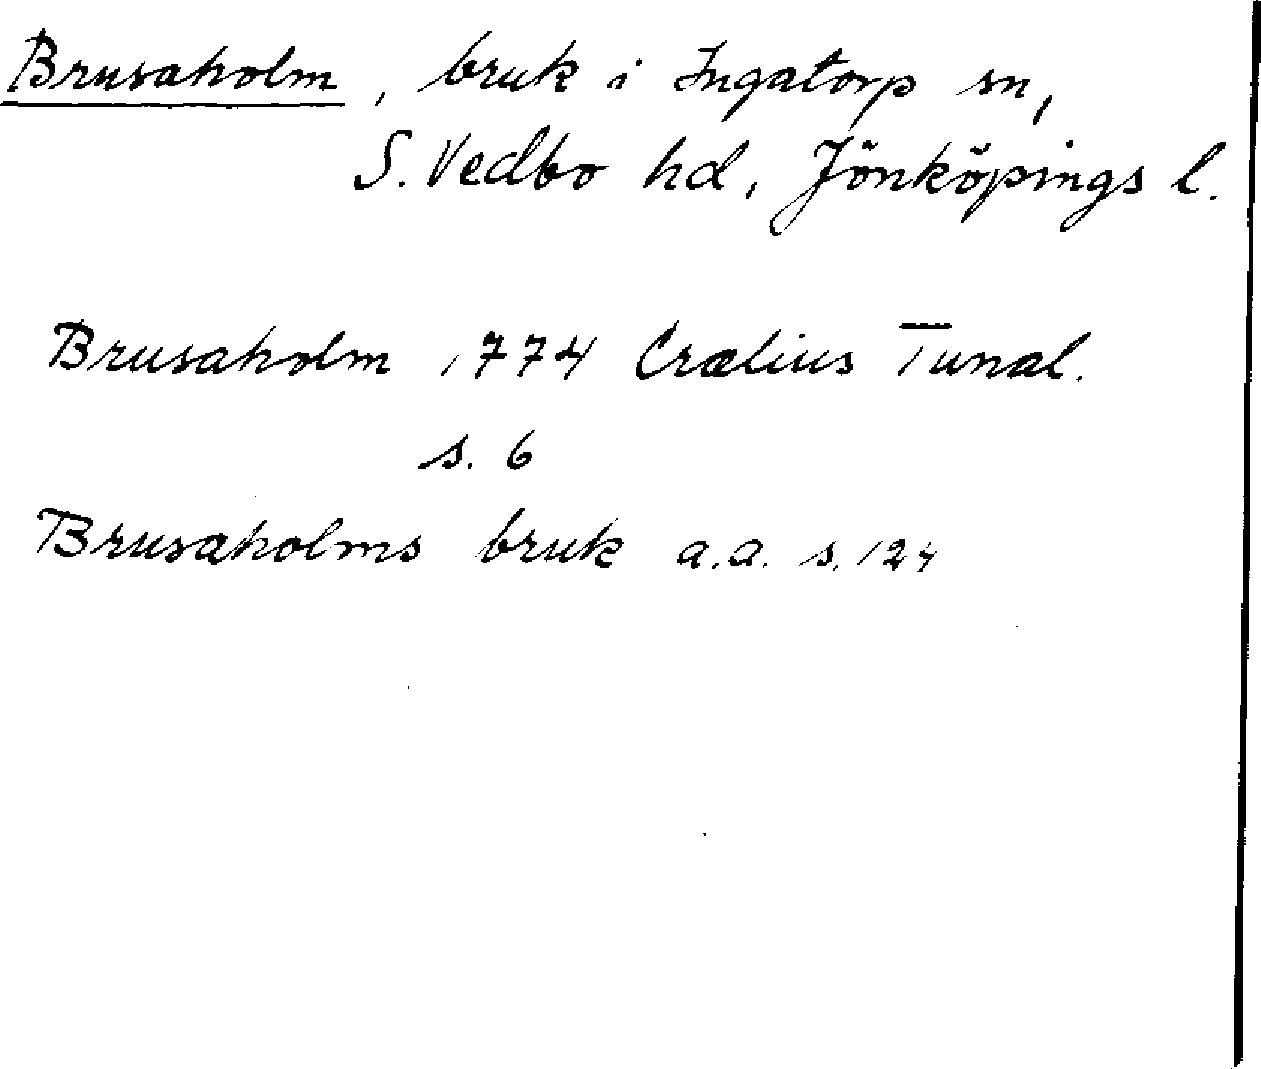 Brusaholm, bruk i Ingatorp sn,
S. Vedbo hd, Jönköpings l.
Brusaholm 1774 Crælius Tunal.
s. 6
Brusaholms bruk a.a. s. 124